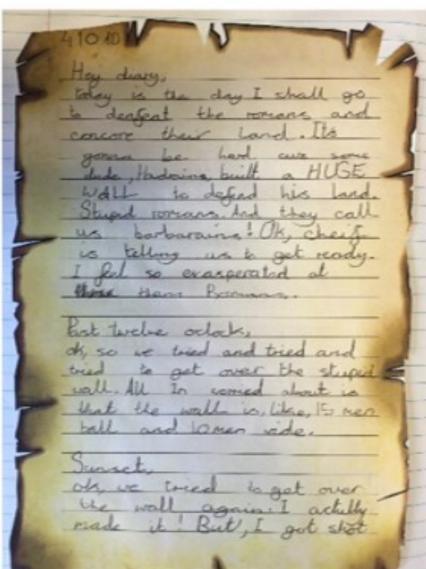 41010
Hey diary,
today is the day I shall go
to denfeat the romans and
concore their land. Its
gonna be hard cuz some
dude, Hadrains, built a HUGE
WALL to defend his land.
Stupid romans. And they call
us barbarains! Ok, cheif
is telling us to get ready.
I feel so exasperated at
them Romans.
Past twelve oclock,
ok, so we tried and tried and
tried to get over the stupid
wall. All Im worried about is
that the wall is, like, 15 men
tall and 10 men wide.
Sunset,
ok, we tried to get over
the wall again. I actully
made it! But, I got shot